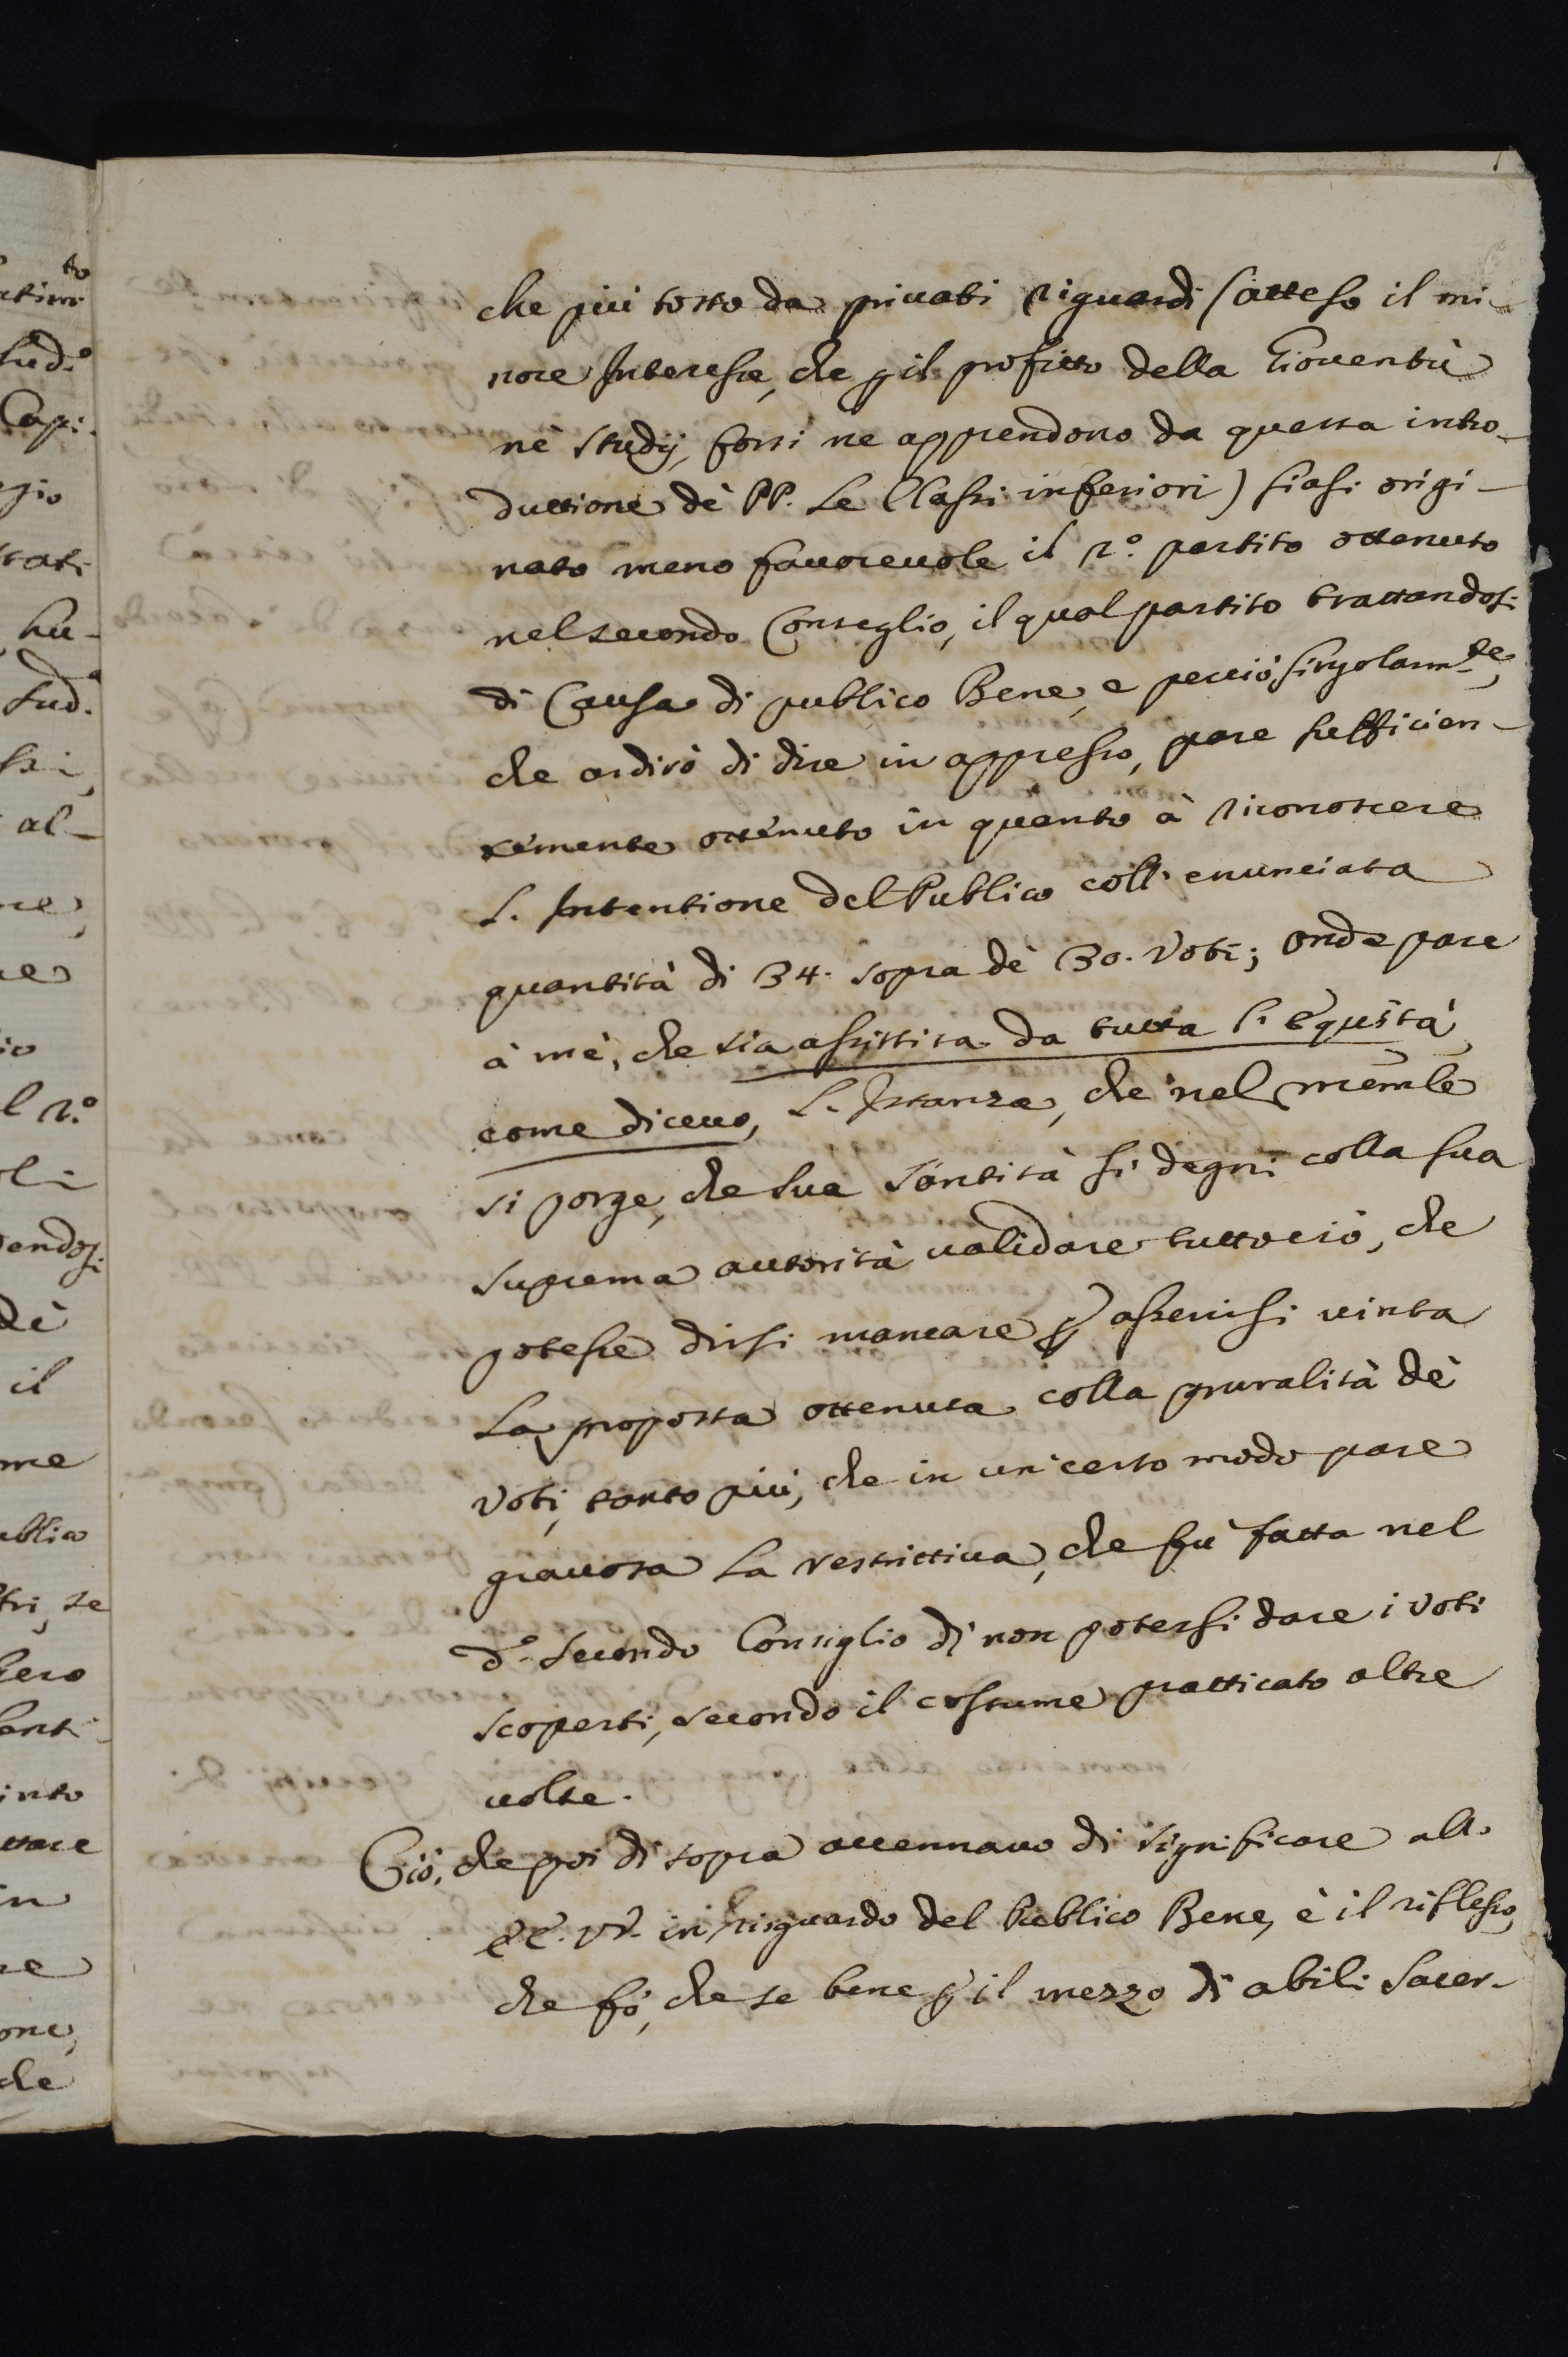 che più tosto da priuati riguardi (atteso il mi-
nore Interesse, che p il profitto della Giouentù
nè studij, forsi ne apprendono da questa intro-
duttione dè PP. le Classi inferiori) siasi origi-
nato meno fauoreuole il 2.º partito ottenuto
nel secondo Conseglio, il qual partito trattandosi
di Causa di publico Bene, e perciò singolarm.te,
che ardirò di dire in appresso, pare sufficien-
temente ottenuto in quanto à riconoscere
l. Intentione del Publico coll. enunciata
quantità di 34. sopra dè 30. Voti; onde pare
à mè, che sia assistita da tutta l. Equità
come diceuo, l. Istanza, che nel memle
si porge, che sua Santità si degni colla sua
suprema autorità ualidare tuttociò, che
potesse dirsi mancare p asserirsi uinta
la proposta ottenuta colla pruralità dè
Voti, tanto più, che in un certo modo pare
grauosa la restrittiua, che fù fatta nel
d.º secondo Consiglio di non potersi dare i Voti
scoperti, secondo il costume pratticato altre
uolte.
Ciò, che poi di sopra accennauo di significare all.
EE. VV. in risguardo del Publico Bene, è il riflesso,
che fò, che se bene p il mezzo di abili Sacer-
to
sud.º
Capi.
gio
hu-
sud.
al-
l 2.º
dè
il
me
ublico
tri, se
into
in
one,
che